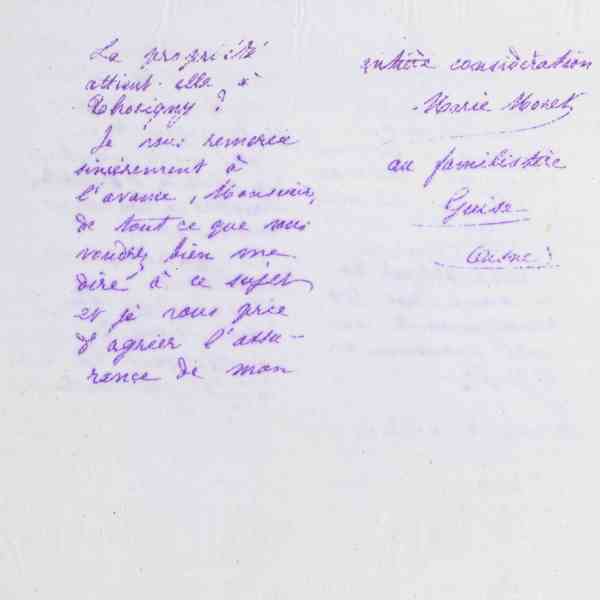 La propriété
attient-elle à
Thorigny ?
Je vous remercie
sincèrement à
l'avance, Monsieur,
de tout ce que vous
voudrez bien me
dire à ce sujet
et je vous prie
d'agréer l'assu-
rance de mon
entière considération
Marie Moret
au familistère
Guise
Aisne